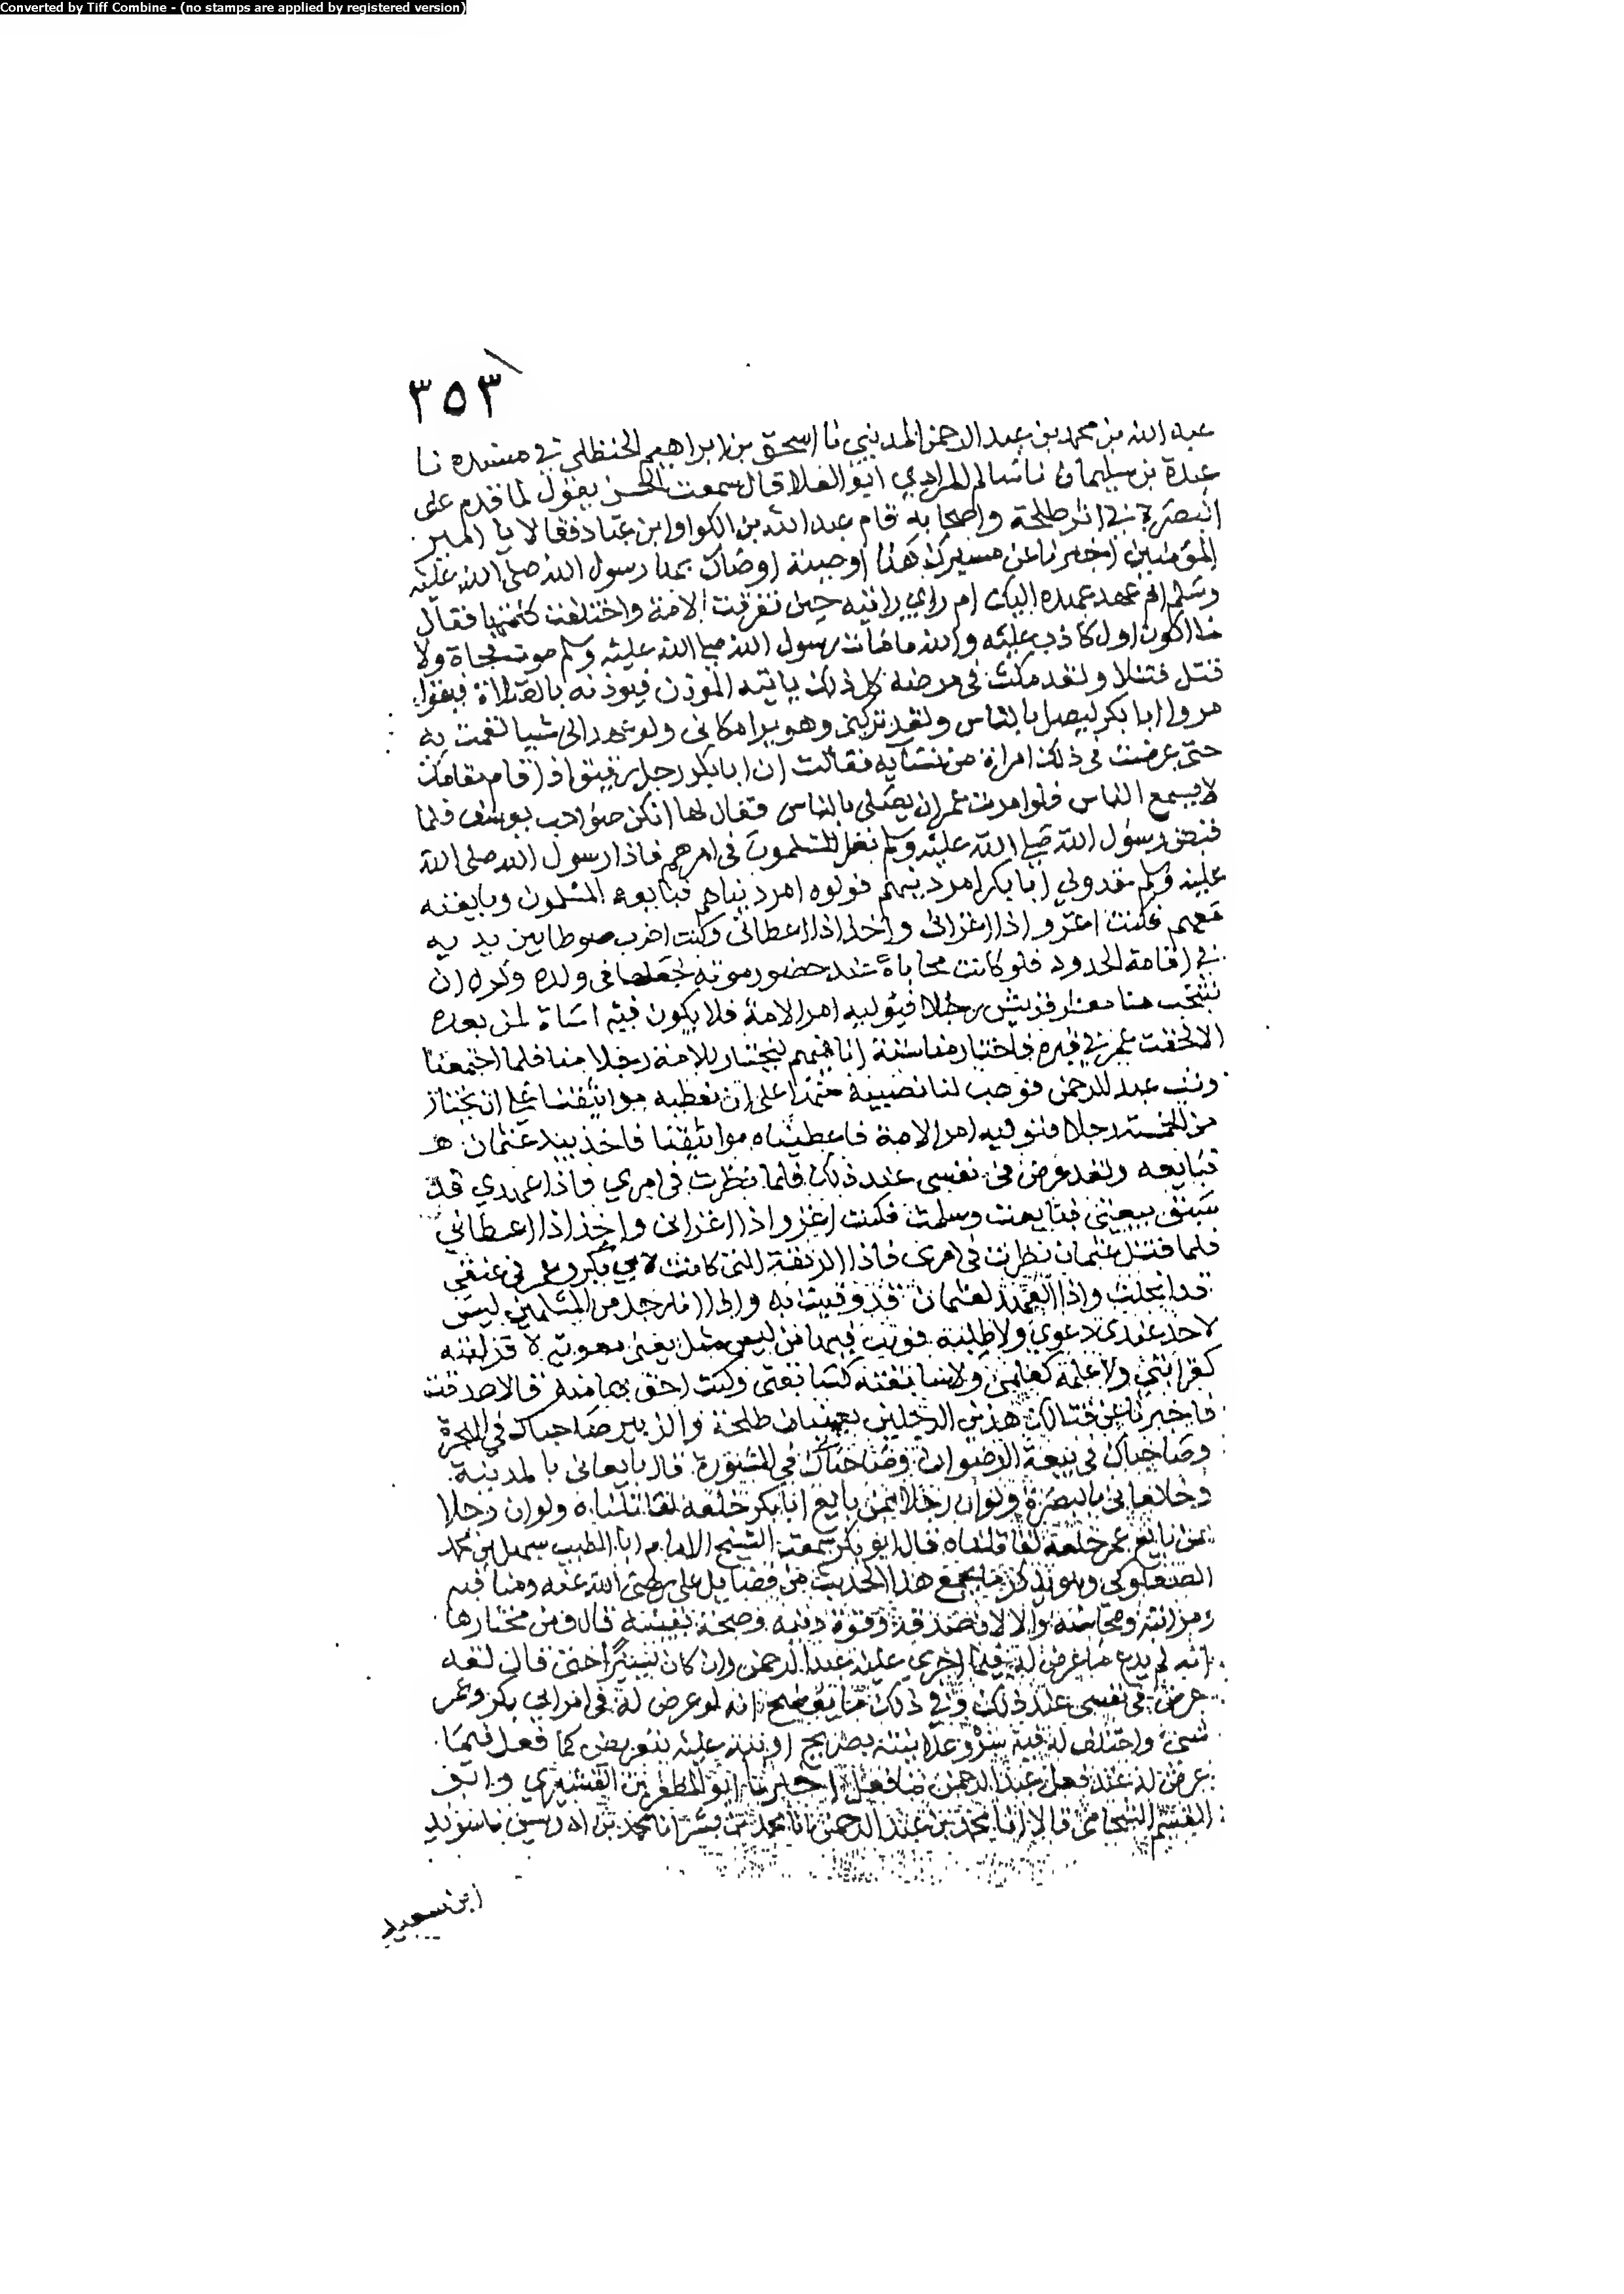 Converted by Tiff Combine - (no stamps are applied by registered version)
٣٥٣
عبد الله بن محمد بن عبد الرحمن المديني نا اسحق بن ابراهيم الحنظلي في مسنده نا
عبدة بن سليمان نا سالم المرادي ابو العلا قال سمعت الحسن يقول لما قدم على
البصرة في اثر طلحة واصحابه قام عبد الله بن الكوا وابن عباد فقالا يا امير
المؤمنين اخبرنا عن مسيرك هذا اوصية اوصاك بها رسول الله صلى الله عليه
وسلم ام عهد عهده اليك ام راي رايته حين تفرقت الامة واختلفت كلمتها فقال
ما اكون اول كاذب عليه والله ما مات رسول الله صلى الله عليه وسلم موت فجاة ولا
قتل قتلا ولقد مكث في مرضه كل ذلك ياتيه الموذن فيوذنه بالصلاة فيقول
مروا ابا بكر ليصل بالناس ولقد تركني وهو يرا مكاني ولو عهد الى شيا لقمت به
حتى عرضت في ذلك امراة من نسايه فقالت ان ابا بكر رجل رقيق اذا قام مقامك
لا يسمع الناس فلو امرت عمر ان يصلى بالناس فقال لها انكن صواحب يوسف فلما
قبض رسول الله صلى الله عليه وسلم نظر المسلمون في امرهم فاذا رسول الله صلى الله
عليه وسلم قد ولي ابا بكر امر دينهم فولوه امر دنياهم فبايعه المسلمون وبايعته
معهم فكنت اغزو اذا اغزانى واخذ اذا اعطانى وكنت اضرب سوطا بين يديه
في اقامة الحدود فلو كانت محاباة عند حضور موته لجعلها في ولده وكره ان
ينتخب منا معشر قريش رجلا فيوليه امر الامة فلا يكون فيه اساة لمن بعده
الا لحقت عمر في قبره فاختار منا ستة انا فيهم ليختار للامة رجلا منا فلما اجتمعنا
وثب عبد الرحمن فوهب لنا نصيبه منها على ان نعطيه مواثيقنا على ان يختار
من الخمسة رجلا فنوليه امر الامة فاعطيناه مواثيقنا فاخذ بيد عثمان
فبايعه ولقد عرض في نفسي عند ذلك فلما نظرت في امري فاذا عهدي قد
سبق بيعتي فبايعت وسلمت فكنت اغزو اذا اغزانى واخذ اذا اعطاني
فلما قتل عثمان نظرت في امرى فاذا الربقة التى كانت لابي بكر وعمر في عنقي
قد انحلت واذا العهد لعثمان قد وفيت به واذا انا رجل من المسلمين ليس
لاحد عندى دعوى ولا طلبة فوثب فيها من ليس مثل يعنى معوية لا قرابته
كقرابتي ولا علمه كعلمي ولا سابقته كسابقتى وكنت احق بها منه قالا صدقت
فاخبرنا عن قتالك هذين الرجلين يعنيان طلحة والزبير صاحباك في الهجرة
وصاحباك في بيعة الرضوان وصاحباك في المشورة قال بايعانى بالمدينة
وخالفانى بالبصرة ولو ان رجلا ممن بايع ابا بكر خلعه لقاتلناه ولو ان رجلا
ممن بايع عمر خلعه لقاتلناه قال ابو بكر سمعت الشيخ الامام ابا الطيب سهل بن محمد
الصعلوكي وهو يذكر ما يجمع هذا الحديث من فضايل على رضى الله عنه ومناقبه
ومزاياه ومحاسنه ودلالات صدقه وقوة دينه وصحة بيعته قال ومن مختارها
انه لم يدع ما عرض له فيما اجرى عليه عبد الرحمن وان كان يسيرا حتى قال لقد
عرض في نفسى عند ذلك وفي ذلك ما يوضح انه لو عرض له في امر ابي بكر وعمر
شئ واختلف له فيه سر وعلانية بينه بصريح او نبه عليه بتعريض كما فعل فيما
عرض له عند فعل عبد الرحمن ما فعل اخبرنا ابو المظفر بن القشيري وابو
القسم الشحامي قالا انا محمد بن عبد الرحمن انا محمد بن بشر انا محمد بن ادريس نا سويد
ابن سعيد